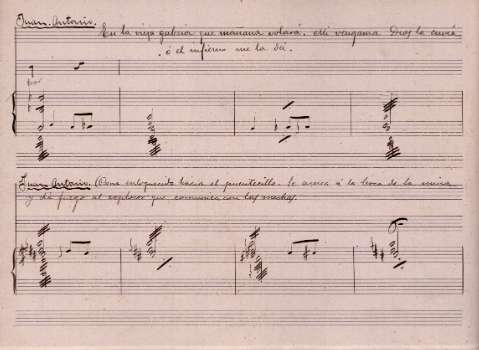 Juan Antonio.
En la vieja galeria que mañana volará. Mi venganza Dios la envia
ó el infierno me la dá.
Juan Antonio. (Corre enloquecido hacia el puentecillo. Se acerca á la boca de la mina
y dá fuego al explosor que comunica con las mechas.